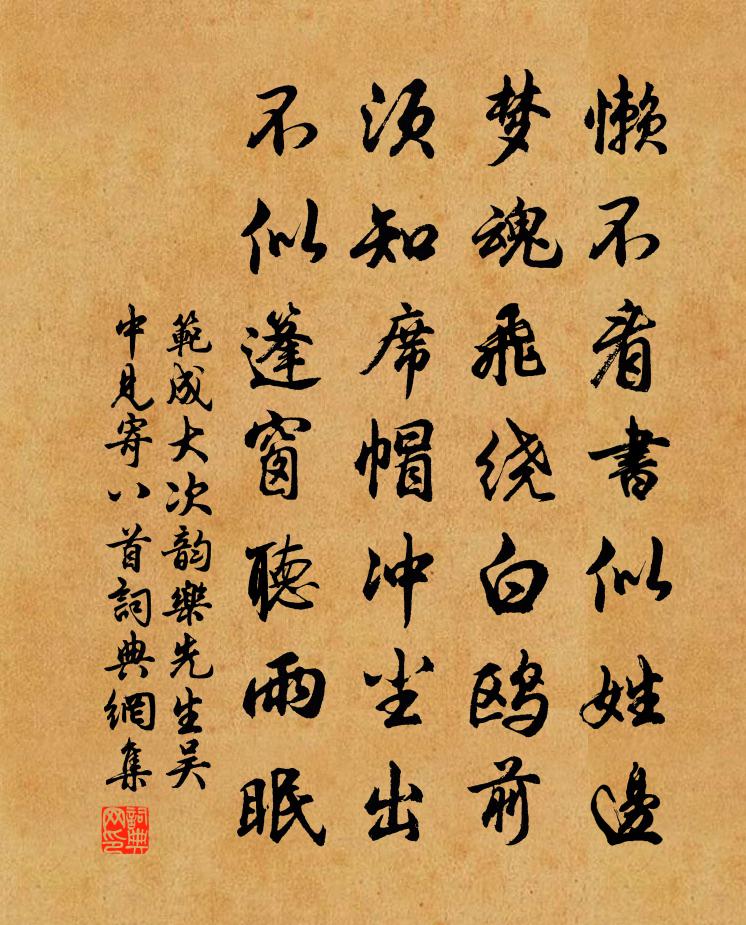 懒不看書似姓邊
梦魂飛绕白鸥前
須知席帽冲尘出
不似篷窗聽雨眠
範成大次韵樂先生吴
中見寄八首詞典網集
詞典
网印